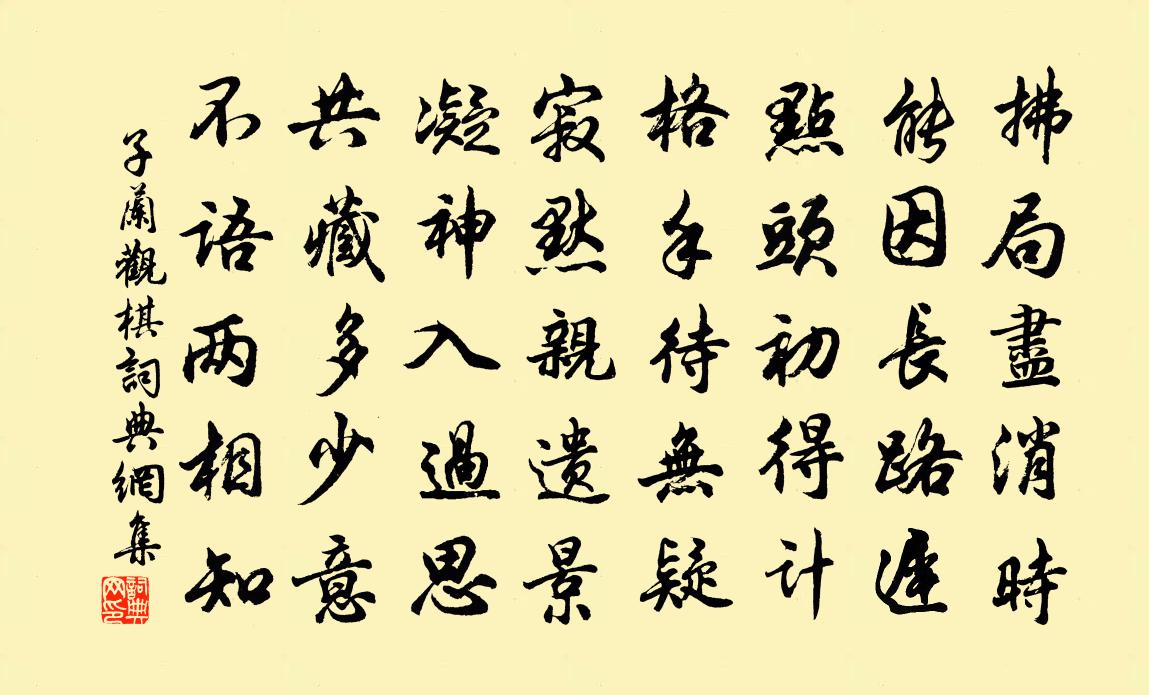 拂局盡消時
能因長路遲
點頭初得計
格手待無疑
寂默親遺景
凝神入過思
共藏多少意
不語两相知
子蘭觀棋詞典網集
詞典
网印